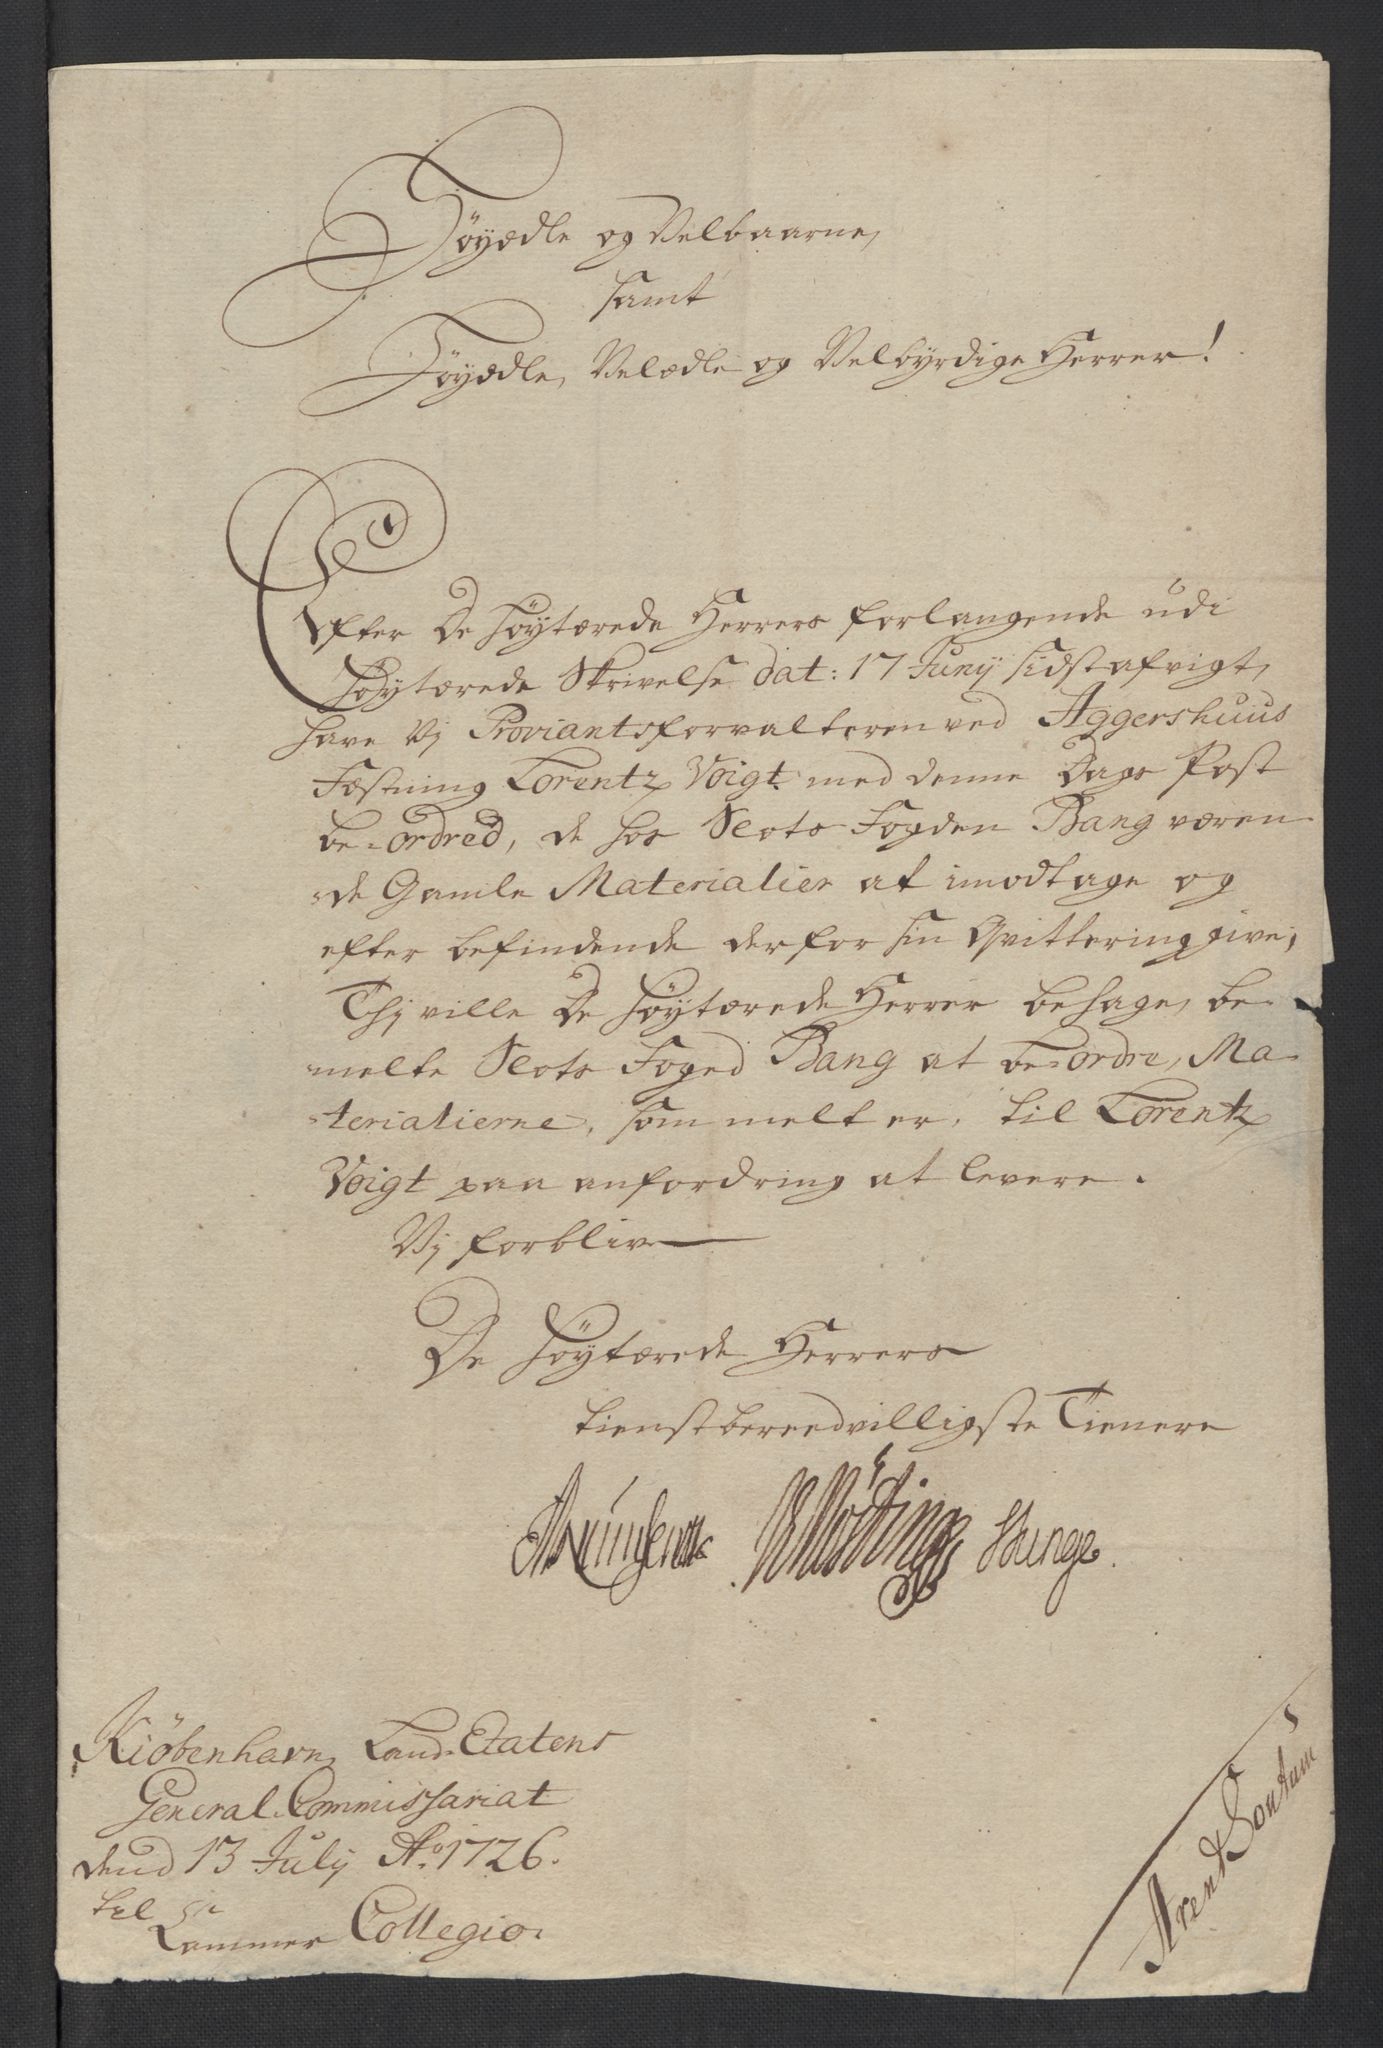 Høyædle og Velbaarne,
samt
Høyædle, Velædle og Velbyrdige Herrer!
Efter De høytærede Herrers forlangende udi
høytærede Skrivelse dat: 17 Juny sidstafvigt,
have Vj Proviantsforvalteren ved Aggershuus
Fæstning Lorentz Voigt med denne Dags Post
be-ordred, de hos Slots Fogden Bang væren-
de Gamle Materialier at imodtage og
efter befindende derfor sin Qvittering give;
Thj ville De høytærede Herrer behage, be-
melte Slots Foged Bang at be-ordre, Ma-
terialierne, som melt er, til Lorentz
Voigt paa anfordring at levere.
Vj forblive
De høytærede Herrers
tienstbereedvilligste Tienere
Kiöbenhavn, Land-Etatens
General-Commissariat
dend 13 July Ao. 1726.
til
Cammer Collegio.
Arent Sontum